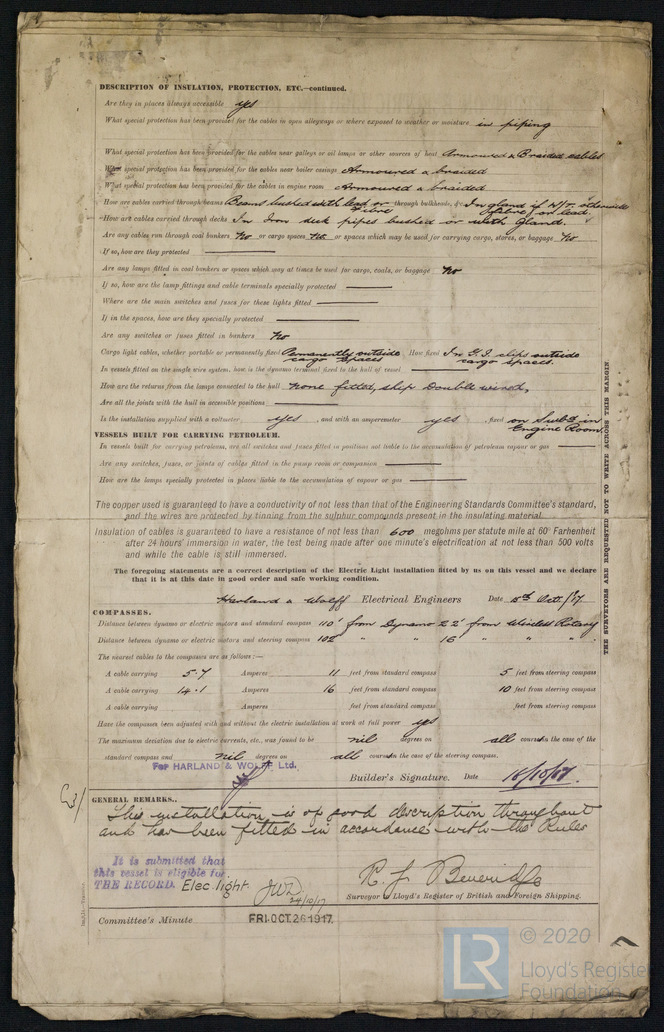 DESCRIPTION OF INSULATION, PROTECTION, ETC.—continued.
Are they in places always accessible yes
What special protection has been provided for the cables in open alleyways or where exposed to weather or moisture in piping
What special protection has been provided for the cables near galleys or oil lamps or other sources of heat Armoured & Braided cables
What special protection has been provided for the cables near boiler casings Armoured & braided
What special protection has been provided for the cables in engine room Armoured & braided
How are cables carried through beams Beams bushed with lead or fibre through bulkheads, &c. In gland if W/T. otherwise fibre or lead.
How are cables carried through decks In Iron deck pipes bushed or with gland.
Are any cables run through coal bunkers No or cargo spaces No or spaces which may be used for carrying cargo, stores, or baggage No
If so, how are they protected
Are any lamps fitted in coal bunkers or spaces which may at times be used for cargo, coals, or baggage No
If so, how are the lamp fittings and cable terminals specially protected
Where are the main switches and fuses for these lights fitted
If in the spaces, how are they specially protected
Are any switches or fuses fitted in bunkers No
Cargo light cables, whether portable or permanently fixed Permanently outside cargo spaces How fixed In G.I. clips outside cargo spaces.
In vessels fitted on the single wire system, how is the dynamo terminal fixed to the hull of vessel
How are the returns from the lamps connected to the hull None fitted, ship Double wired.
Are all the joints with the hull in accessible positions
Is the installation supplied with a voltmeter yes, and with an amperemeter yes, fixed on Swbd in Engine Room
VESSELS BUILT FOR CARRYING PETROLEUM.
In vessels built for carrying petroleum, are all switches and fuses fitted in positions not liable to the accumulation of petroleum vapour or gas
Are any switches, fuses, or joints of cables fitted in the pump room or companion
How are the lamps specially protected in places liable to the accumulation of vapour or gas
The copper used is guaranteed to have a conductivity of not less than that of the Engineering Standards Committee's standard,
and the wires are protected by tinning from the sulphur compounds present in the insulating material.
Insulation of cables is guaranteed to have a resistance of not less than 600 megohms per statute mile at 60° Farhenheit
after 24 hours' immersion in water, the test being made after one minute's electrification at not less than 500 volts
and while the cable is still immersed.
The foregoing statements are a correct description of the Electric Light installation fitted by us on this vessel and we declare
that it is at this date in good order and safe working condition.
Harland & Wolff Electrical Engineers Date Oct./17
COMPASSES.
Distance between dynamo or electric motors and standard compass 110' from Dynamo 22' from Wireless Rotary
Distance between dynamo or electric motors and steering compass 102 " " 16 " " " .
The nearest cables to the compasses are as follows:—
A cable carrying 5.7 Amperes 11 feet from standard compass 5 feet from steering compass
A cable carrying 14.1 Amperes 16 feet from standard compass 10 feet from steering compass
A cable carrying Amperes feet from standard compass feet from steering compass
Have the compasses been adjusted with and without the electric installation at work at full power yes
The maximum deviation due to electric currents, etc., was found to be nil degrees on all courses in the case of the
standard compass and nil degrees on all courses in the case of the steering compass.
For HARLAND & WOLFF, Ltd.
Builder's Signature. Date 18/10/17.
GENERAL REMARKS.
This installation is of good description throughout
and has been fitted in accordance with the Rules
It is submitted that
this vessel is eligible for
THE RECORD. Elec. light
24/10/17
R. J. Beveridge
Surveyor to Lloyd's Register of British and Foreign Shipping.
Committee's Minute FRI. OCT. 26 1917.
THE SURVEYORS ARE REQUESTED NOT TO WRITE ACROSS THIS MARGIN.
LR
© 2020
Lloyd's Register
Foundation